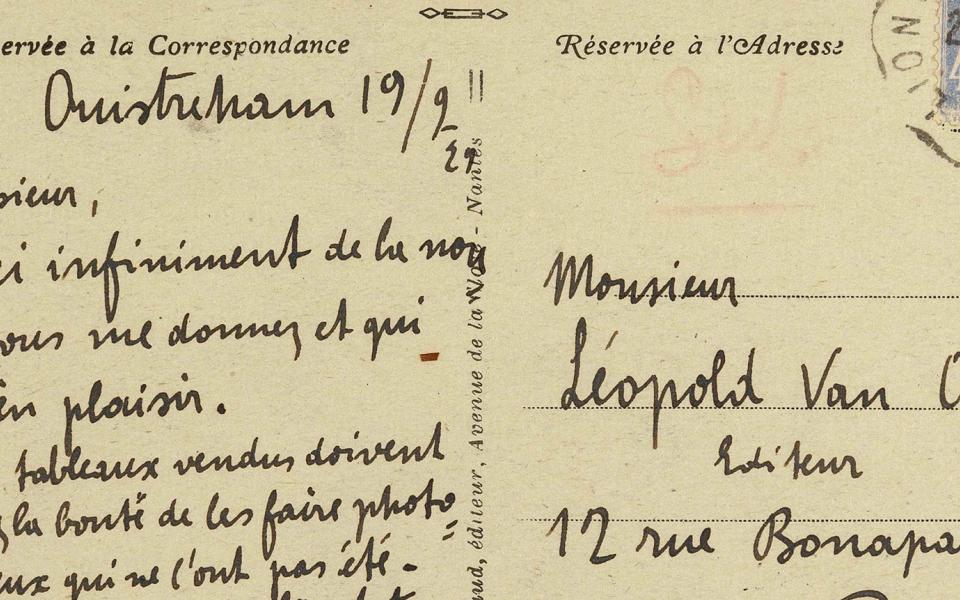 ervée à la Correspondance
Ouistreham 19/9
29
sieur,
ci infiniment de la nou
vous me donnez et qui
en plaisir.
tableaux vendus doivent
z la bonté de les faire photo=
eux qui ne l'ont pas été.
ud, éditeur, Avenue de la - Nantes
Réservée à l'Adresse
Monsieur
Léopold Van
Editeur
12 rue Bonapa